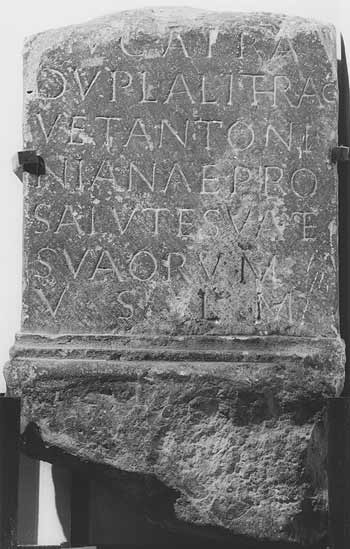 DVPLALITHRAC
VETANTONI
NIANAEPRO
SALVTESVAE
SVAORVM
V S L M